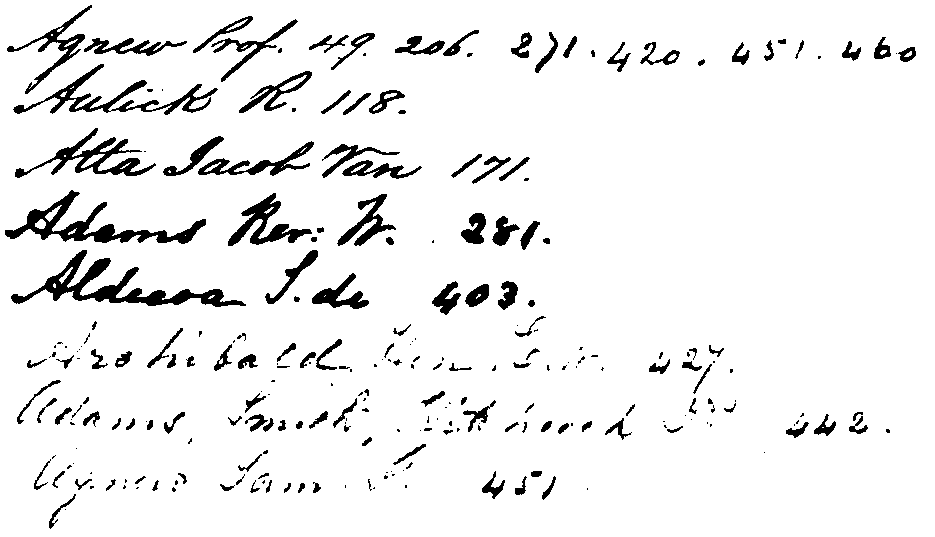 Agnew Prof. 49. 206. 271. 420. 451. 460
Aulick R. 118.
Alta Jacob Van 171.
Adams Rev: W. 281.
Aldecoa S. de 403.
Archibald 427.
Adams, Smith, 442.
Agnew Sam 451